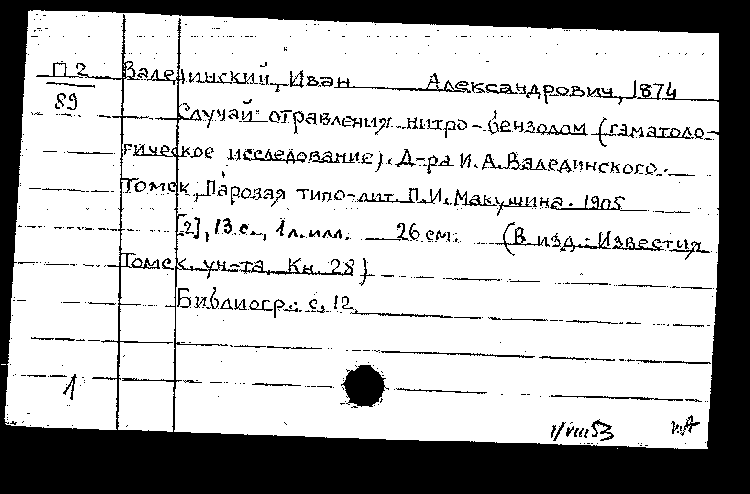 П 2 Валединский, Иван Александрович, 1874
89
Случай отравления нитро-бензолом (гаматоло-
гическое исследование). Д-ра И.А. Валединского.
Томск, Паровая типо-лит. П.И. Макушина. 1905
[2], 13 с., 1 л. илл. 26 см. (В изд.: Известия
Томск. ун-та. Кн. 28)
Библиогр.: с. 12.
1
1/VIII 53